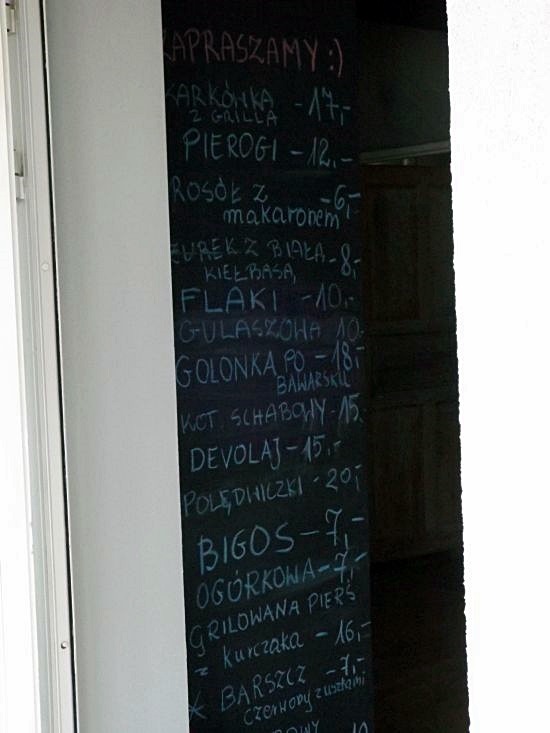 ZAPRASZAMY :)
KARKÓWKA -17,-
Z GRILLA
PIEROGI -12.-
ROSÓŁ Z -6,-
makaronem
ŻUREK Z BIAŁĄ -8,-
KIEŁBASĄ
FLAKI -10.-
GULASZOWA 10-
GOLONKA PO -18,-
BAWARSKU
KOT. SCHABOWY -15,
DEVOLAJ -15.-
POLĘDWICZKI -20,-
BIGOS -7,-
OGÓRKOWA -7,-
GRILOWANA PIERŚ
z kurczaka -16,-
* BARSZCZ -7,-
czerwony z uszkami